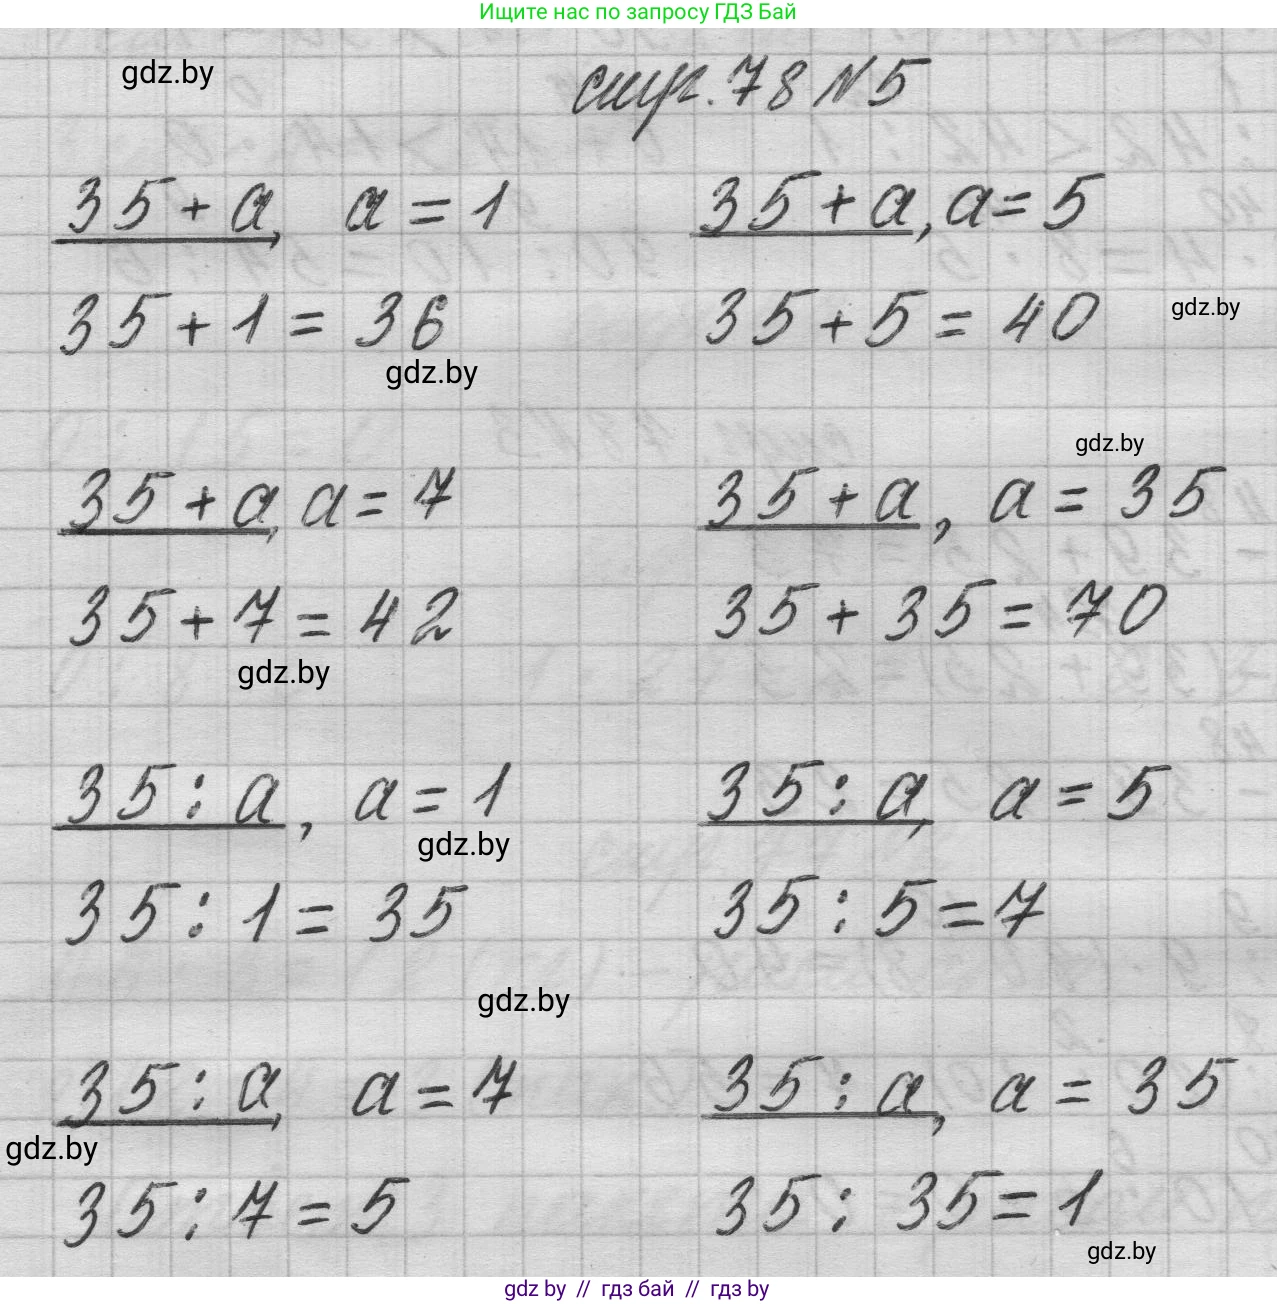 Ищите нас по запросу ГДЗ Бай
gdz.by
стр. 78 №5
35 + а, а = 1
35 + а, а = 5
35 + 1 = 36
35 + 5 = 40
gdz.by
gdz.by
gdz.by
35 + а, а = 7
35 + а, а = 35
35 + 7 = 42
35 + 35 = 70
gdz.by
35 : а, а = 1
35 : а, а = 5
gdz.by
35 : 1 = 35
35 : 5 = 7
gdz.by
35 : а, а = 7
35 : а, а = 35
gdz.by
35 : 7 = 5
35 : 35 = 1
gdz.by
gdz by // гдз бай // гдз by